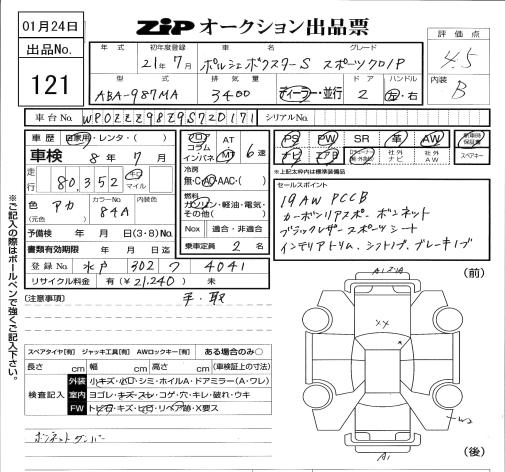 01月24日
ZiP オークション出品票
出品No.
121
評価点
4.5
内装
B
年式 初年度登録 車名 グレード
21年7月 ポルシェボクスターS スポーツクロノP
型式 排気量 ドア ハンドル
ABA-987MA 3400 ディーラー・並行 2 左・右
車台No. WP0ZZZ98Z9S720171 シリアルNo.
車歴 自家用・レンタ・( )
車検 8年7月
走行 80,352 キロ マイル
色 アカ (元色) カラーNo. 84A 内装色
予備検 年 月 日(3・8)No.
書類有効期限 年 月 日迄
登録No. 水戸 302 7 4041
リサイクル料金 有(¥21,240) 未
フロア コラム インパネ AT M 6速
冷房 無・AC・AAC・( )
燃料 ガソリン・軽油・電気・その他( )
Nox 適合・非適合
乗車定員 2名
PS PW SR 革 AW 新車時保証書
ナビ エアB 社外ナビ 社外AW スペアキー
*上記太枠内は標準装備品
セールスポイント
19AW PCCB
カーボンリアスポ. ボンネット
ブラックレザースポーツシート
インテリアトリム、シフトノブ、ブレーキノブ
(注意事項) 手・取
スペアタイヤ[有] ジャッキ工具[有] AWロックキー[有] ある場合のみ○
長さ cm 幅 cm 高さ cm (車検証上の寸法)
検査記入
外装 小キズ・小凹・シミ・ホイルA・ドアミラー(A・ワレ)
室内 ヨゴレ・キズ・スレ・コゲ・穴・キレ・破れ・ウキ
FW トビ石・キズ・ヒビ・リペア跡・X要ス
ボンネットダンパー
※ご記入の際はボールペンで強くご記入下さい。
(前)
XX
W2
A1
(後)